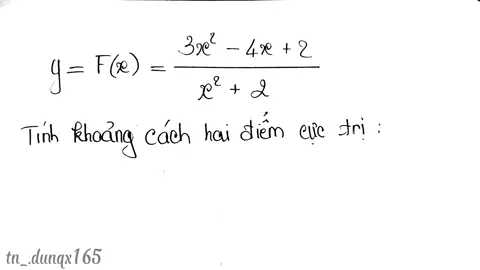 y = F(x) = \frac{3x^2 - 4x + 2}{x^2 + 2}
Tính khoảng cách hai điểm cực trị :
tn_.dunqx165